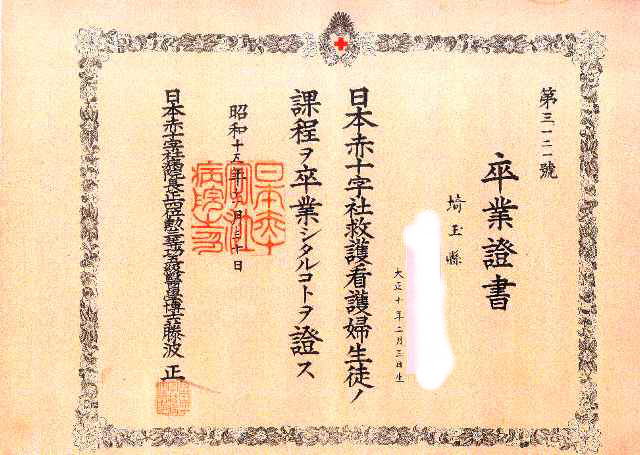 第三一二一號
卒業證書
埼玉縣
大正十年二月三日生
日本赤十字社救護看護婦生徒ノ
課程ヲ卒業シタルコトヲ證ス
昭和十五年 月 十日
日本赤十字社病院長正四位勲三等功 級醫學博士藤波 正